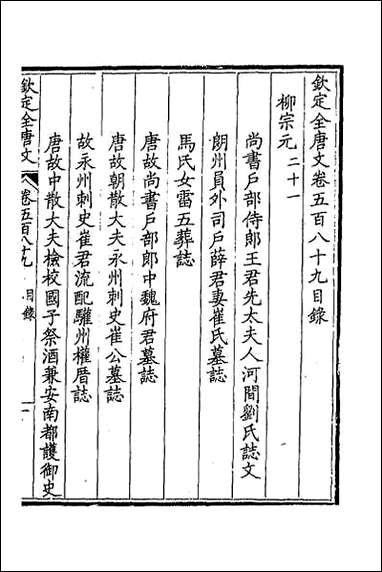 欽定全唐文卷五百八十九目錄
柳宗元二十一
尚書戶部侍郎王君先太夫人河間劉氏誌文
朗州員外司戶薛君妻崔氏墓誌
馬氏女雷五葬誌
唐故尚書戶部郎中魏府君墓誌
唐故朝散大夫永州刺史崔公墓誌
故永州刺史崔君流配驩州權厝誌
唐故中散大夫檢校國子祭酒兼安南都護御史
欽定全唐文 卷五百八十九 目錄 一